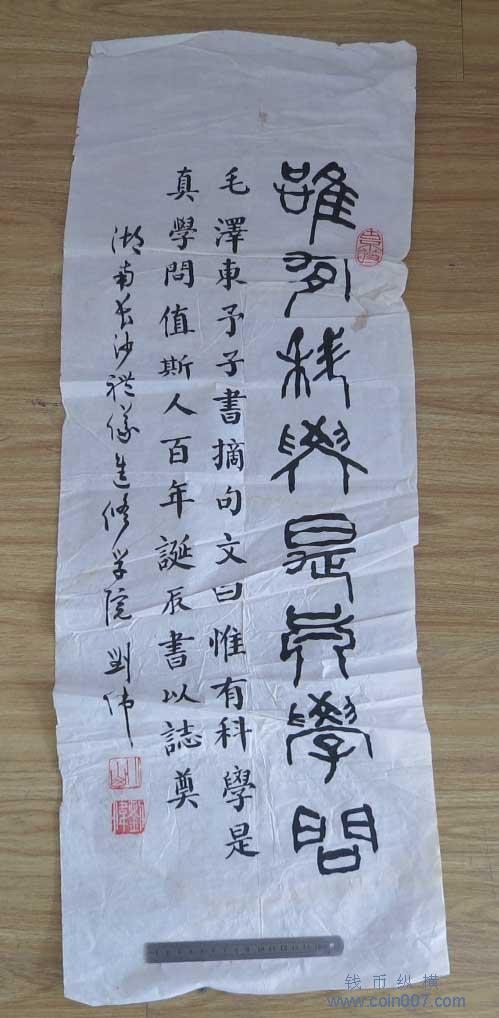 惟有科學是真學問
毛澤東予子書摘句文曰惟有科學是
真學問值斯人百年誕辰書以誌奠
湖南长沙礼儀進修学院 劉伟
劉偉
钱币纵横
www.coin007.com